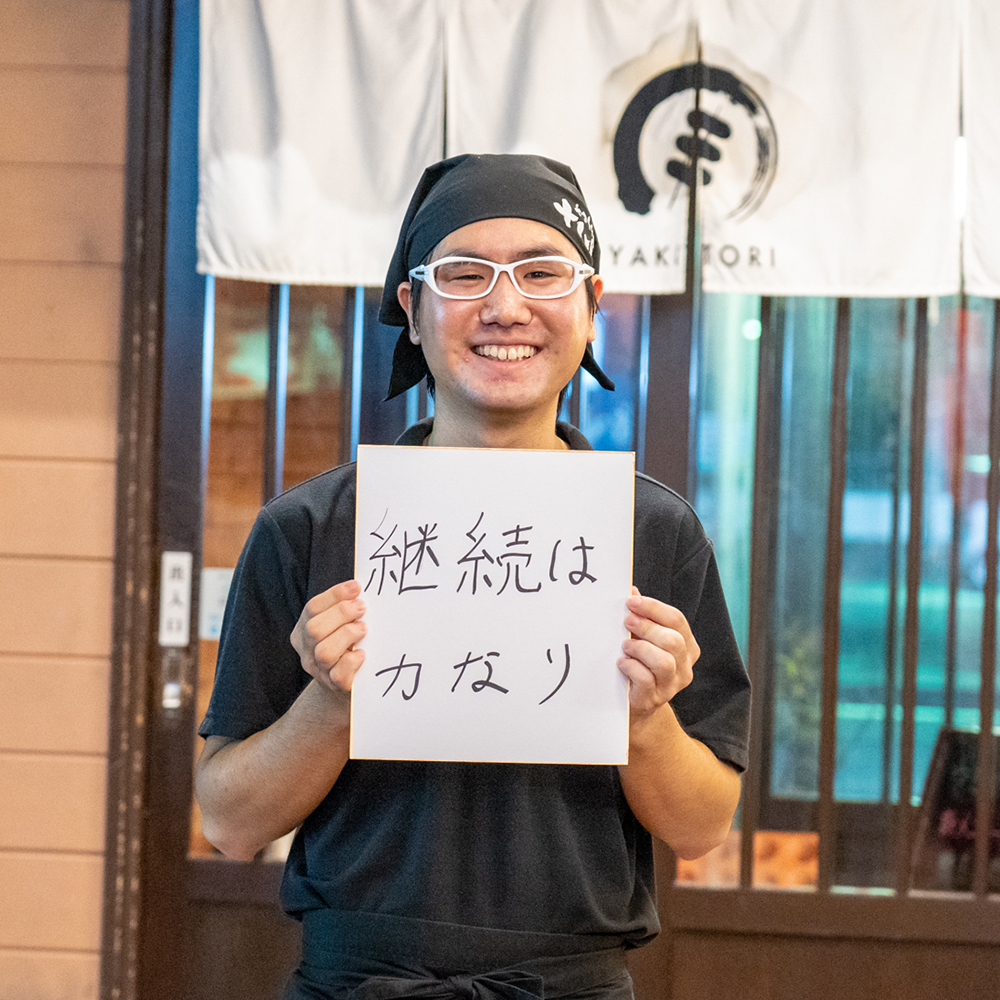 YAKITORI
継続は
力なり